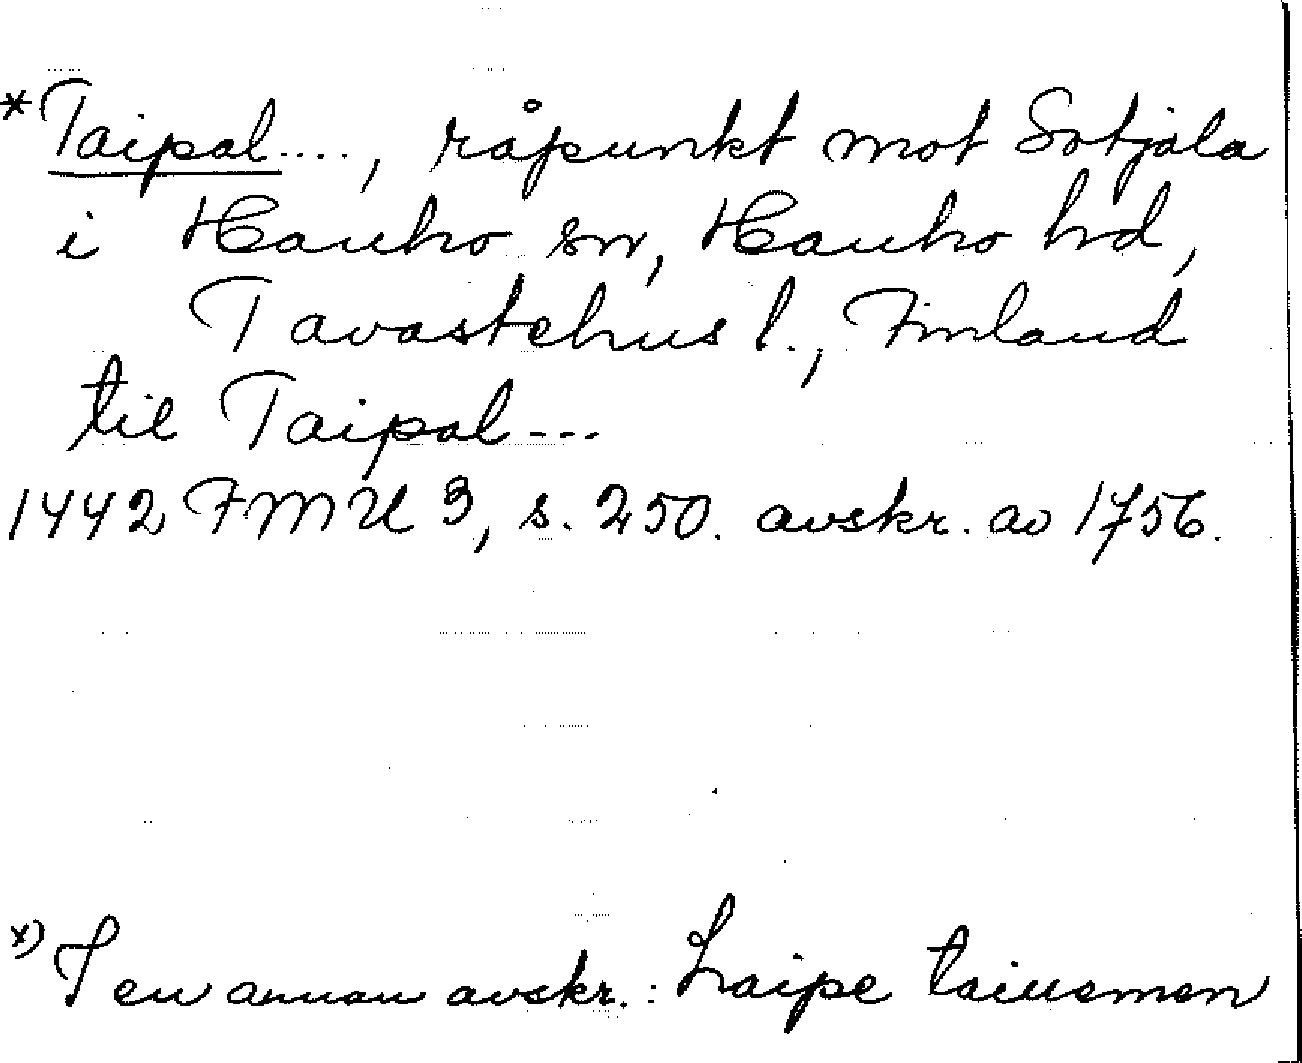 *Taipal...., råpunkt mot Sotjala
i Hauho sn, Hauho hd,
Tavastehus l., Finland
til Taipal---
1442 FMU 3, s. 250. avskr. av 1756.
x) I en annan avskr.: Laipe